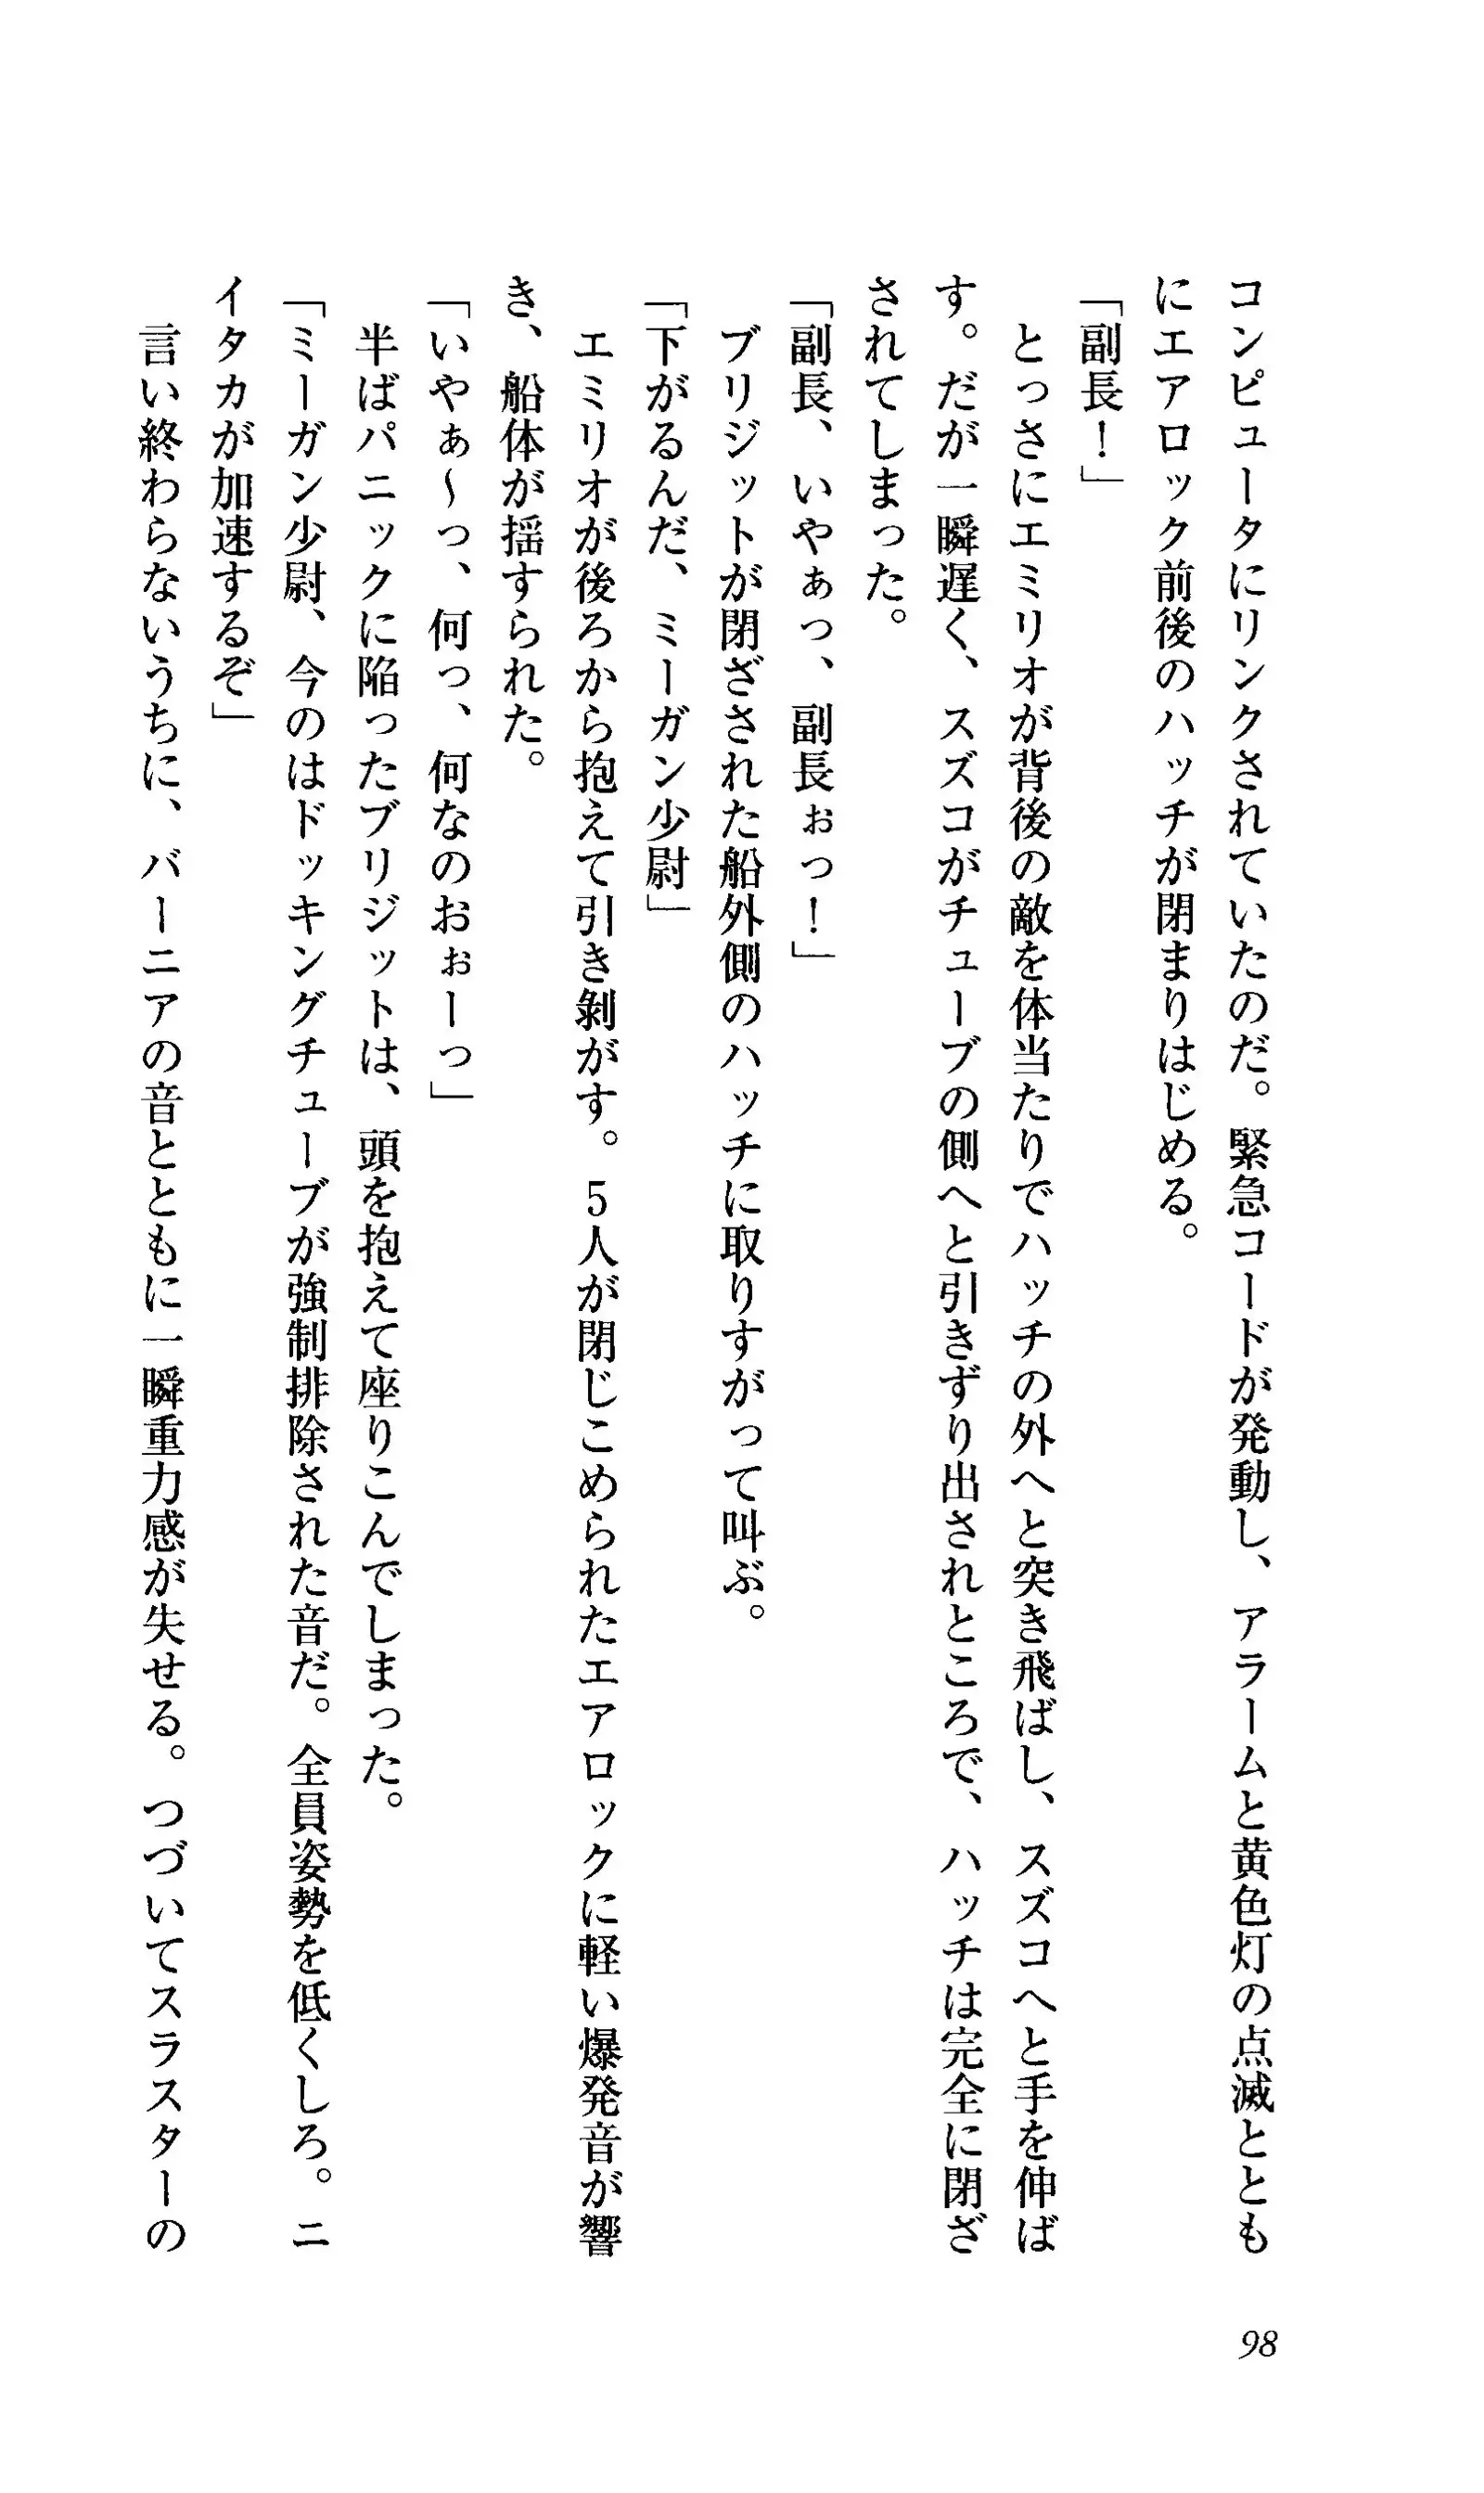 コンピュータにリンクされていたのだ。緊急コードが発動し、アラームと黄色灯の点滅ととも
にエアロック前後のハッチが閉まりはじめる。
「副長！」
　とっさにエミリオが背後の敵を体当たりでハッチの外へと突き飛ばし、スズコへと手を伸ば
す。だが一瞬遅く、スズコがチューブの側へと引きずり出されところで、ハッチは完全に閉ざ
されてしまった。
「副長、いやぁっ、副長ぉっ！」
　ブリジットが閉ざされた船外側のハッチに取りすがって叫ぶ。
「下がるんだ、ミーガン少尉」
　エミリオが後ろから抱えて引き剝がす。5人が閉じこめられたエアロックに軽い爆発音が響
き、船体が揺すられた。
「いやぁ～っ、何っ、何なのおぉーっ」
　半ばパニックに陥ったブリジットは、頭を抱えて座りこんでしまった。
「ミーガン少尉、今のはドッキングチューブが強制排除された音だ。全員姿勢を低くしろ。ニ
イタカが加速するぞ」
　言い終わらないうちに、バーニアの音とともに一瞬重力感が失せる。つづいてスラスターの
98